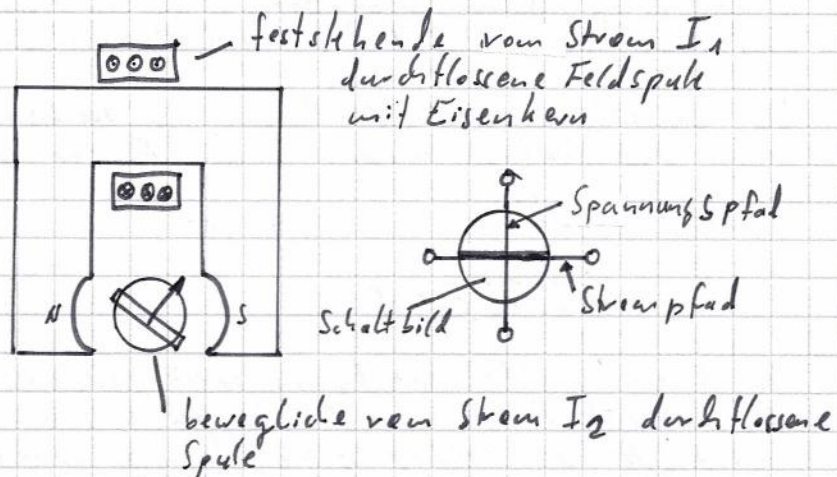 feststehende vom Strom I1
durchflossene Feldspule
mit Eisenkern
Spannungspfad
N
S
Schaltbild
Strompfad
bewegliche vom Strom I2 durchflossene
Spule